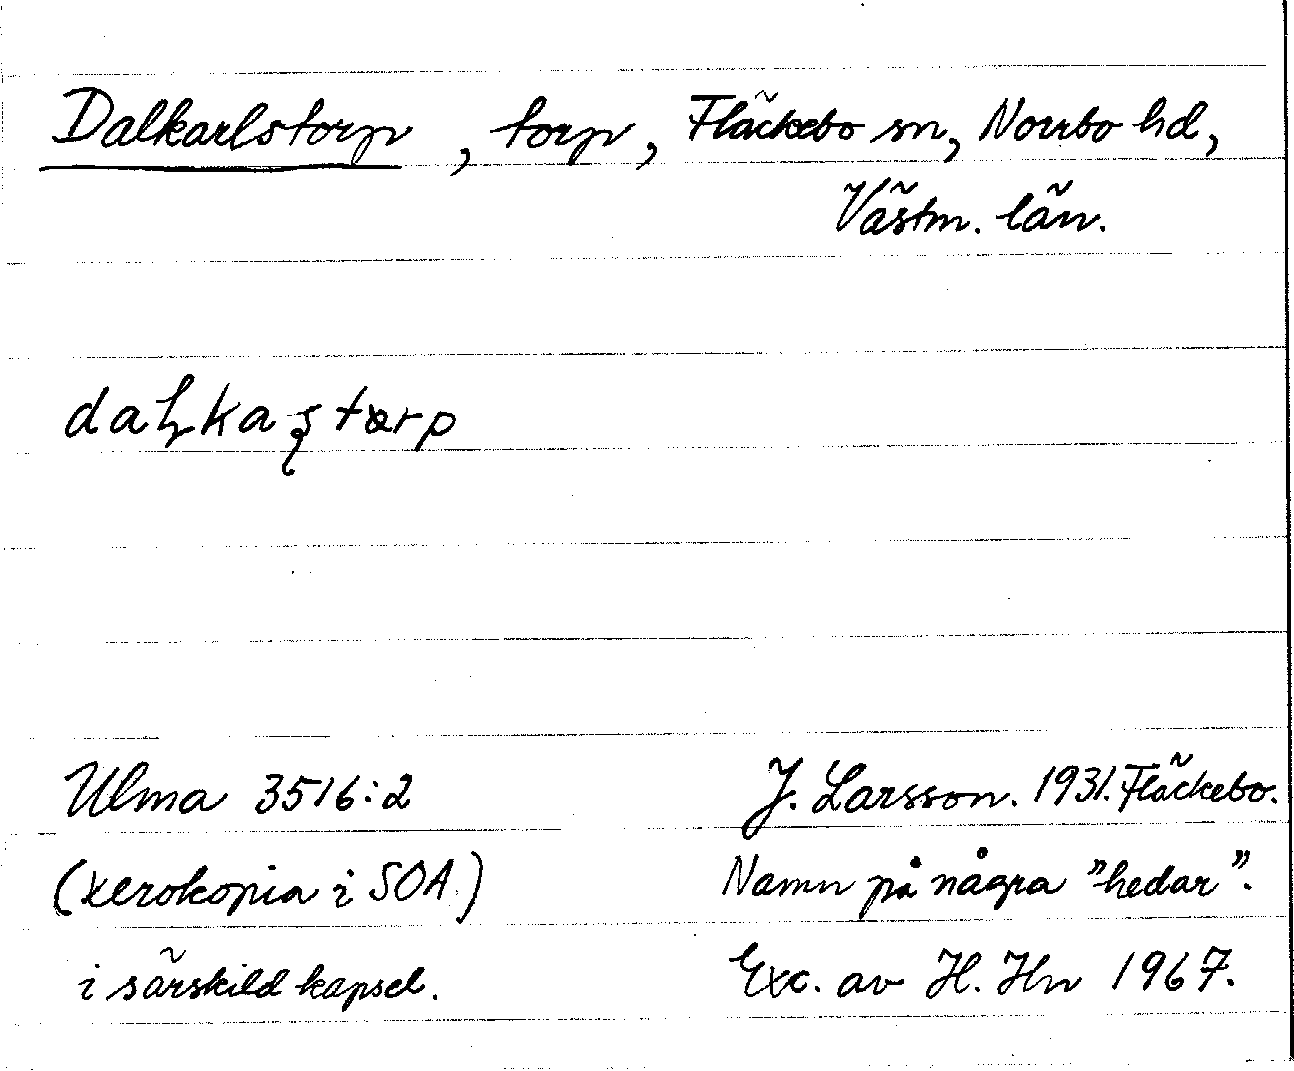 Dalkarlstorp, torp, Fläckebo sn, Norrbo hd,
Västm. län.
Ulma 3516:2
(xerokopia i SOA)
i särskild kapsel.
J. Larsson. 1931. Fläckebo.
Namn på några "hedar".
Exc. av H. Hn 1967.